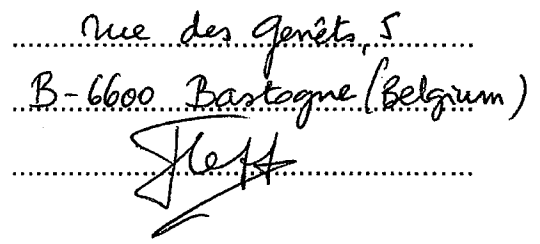 rue des Genêts, 5
B-6600 Bastogne (Belgium)